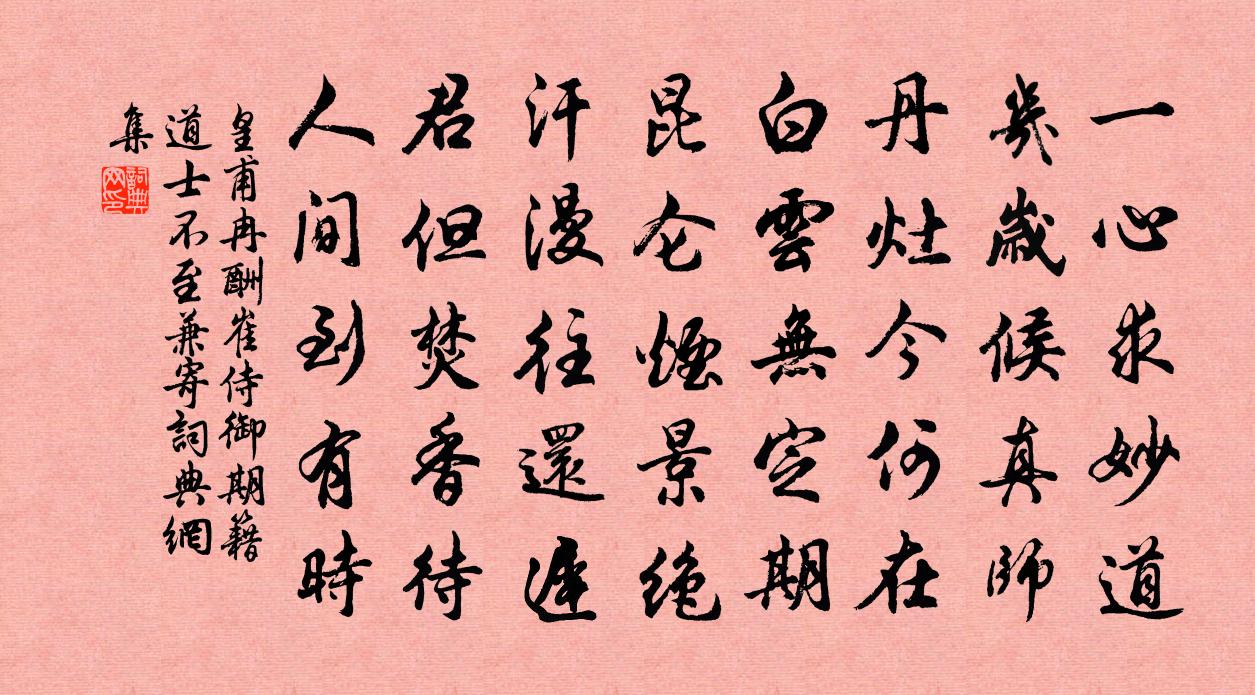 一心求妙道
幾歲候真師
丹灶今何在
白雲無定期
昆仑煙景绝
汗漫往還遲
君但焚香待
人間到有時
皇甫冉酬崔侍御期籍
道士不至兼寄詞典網
集
詞典
网印